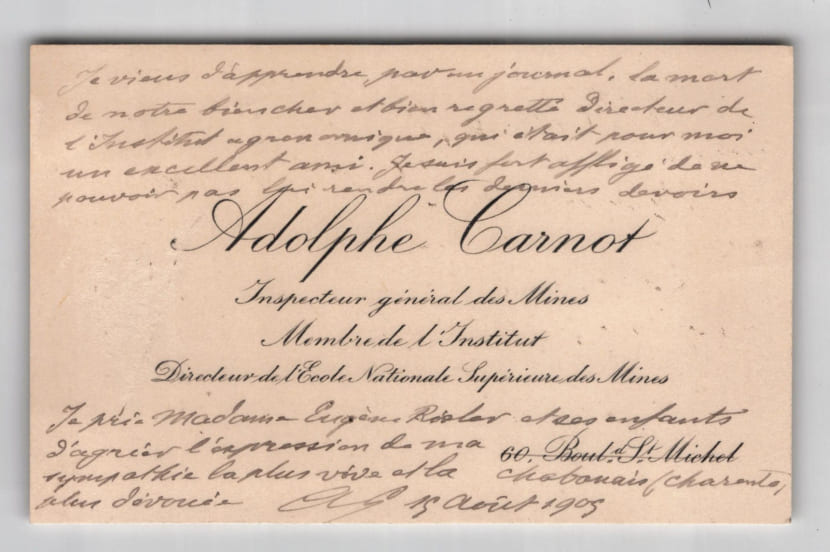 Je viens d'apprendre, par un journal, la mort
de notre bien cher et bien regretté Directeur de
l'Institut agronomique, qui était pour moi
un excellent ami. Je suis fort affligé de ne
pouvoir pas lui rendre les derniers devoirs
Adolphe Carnot
Inspecteur général des Mines
Membre de l'Institut
Directeur de l'Ecole Nationale Supérieure des Mines
Je prie Madame Eugène Risler et ses enfants
d'agréer l'expression de ma
sympathie la plus vive et la
plus dévouée
60, Boul.d St Michel
Chabanais (Charente)
AC 15 Août 1905